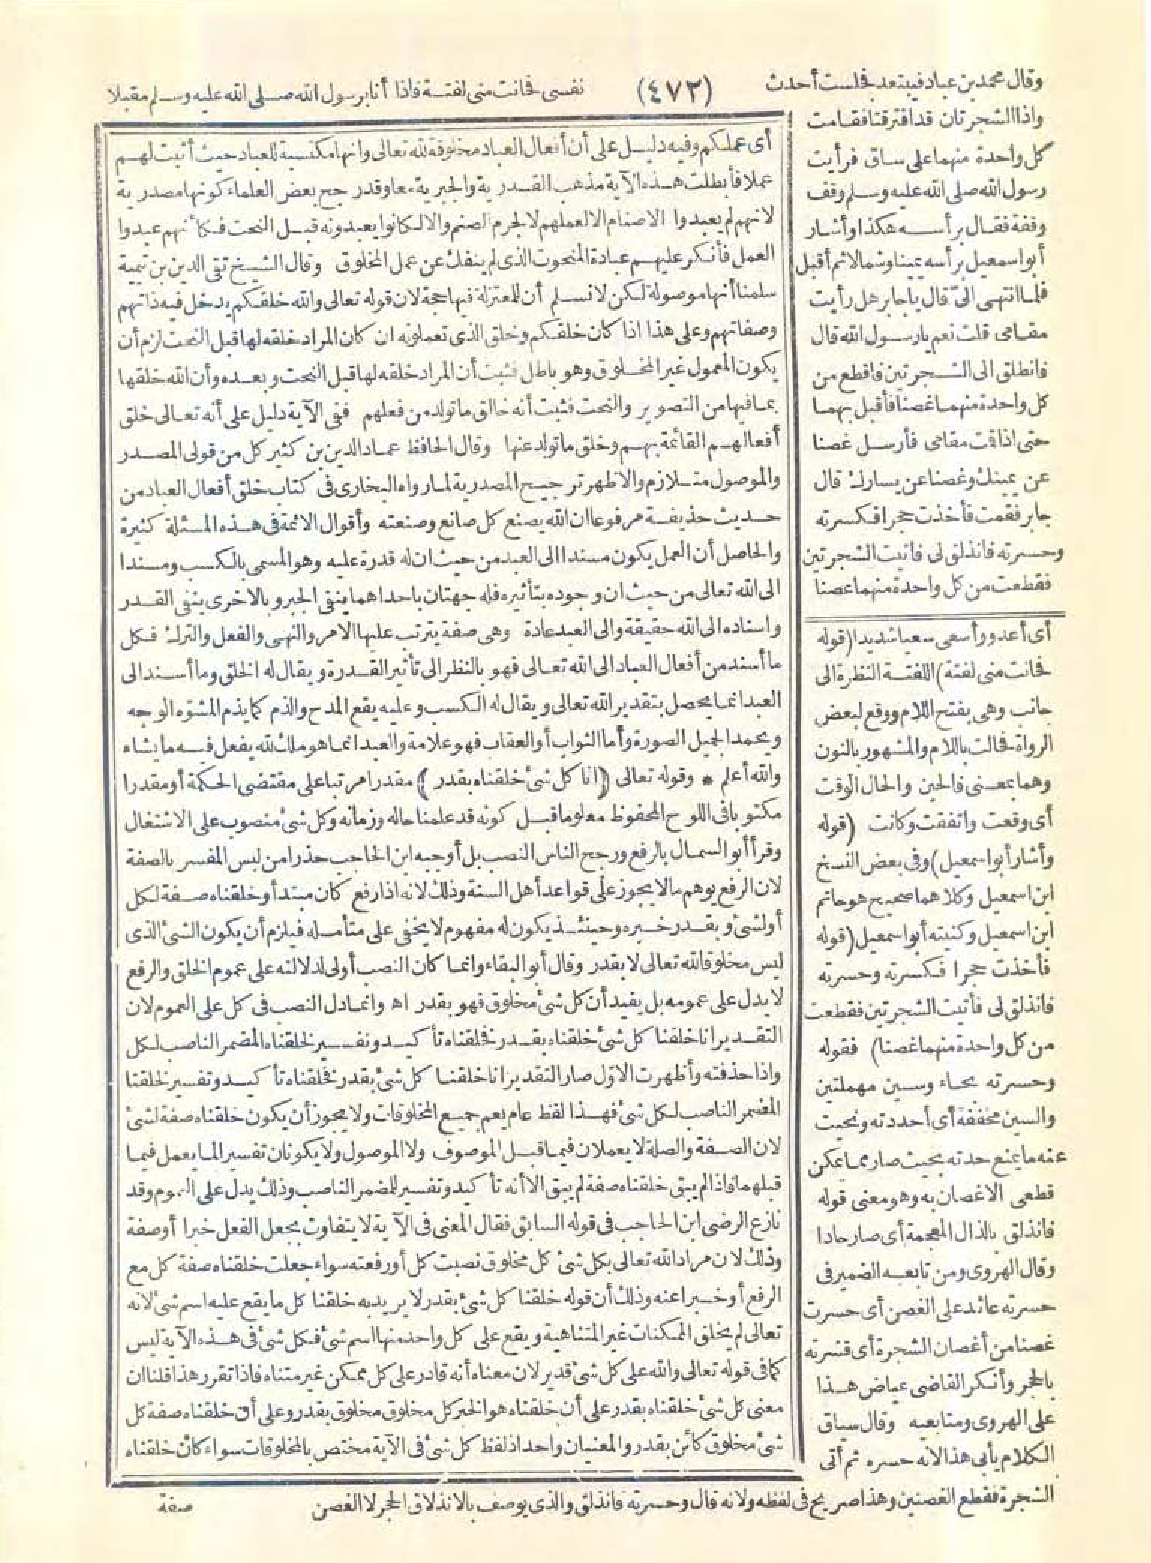 وقال محمد بن عباد فيبتعد فجلست أحدث (٤٧٢) نفسى فحانت منى لفتة فاذا أنا برسول الله صلى الله عليه وسلم مقبلا
واذا الشجرتان قد افترقتا فقامت
كل واحدة منهما على ساق فرأيت
رسول الله صلى الله عليه وسلم وقف
وقفة فقال برأسه هكذا وأشار
أبو اسمعيل برأسه يمينا وشمالا ثم أقبل
فلما انتهى الىّ قال يا جابر هل رأيت
مقامى قلت نعم يا رسول الله قال
فانطلق الى الشجرتين فاقطع من
كل واحدة منهما غصنا فأقبل بهما
حتى اذا قت مقامى فأرسل غصنا
عن يمينك وغصنا عن يسارك قال
جابر فقمت فأخذت حجرا فكسرته
وحسرته فانذلق لى فأتيت الشجرتين
فقطعت من كل واحدة منهما غصنا
أى أعدو وأسعى سعيا شديدا (قوله
فحانت منى لفتة) اللفتة النظرة الى
جانب وهى بفتح اللام ووقع لبعض
الرواة فحالت باللام والمشهور بالنون
وهما بمعنى فالحين والحال الوقت
أى وقعت واتفقت وكانت (قوله
وأشار أبو اسمعيل) وفى بعض النسخ
ابن اسمعيل وكلاهما صحيح هو حاتم
ابن اسمعيل وكنيته أبو اسمعيل (قوله
فأخذت حجرا فكسرته وحسرته
فانذلق لى فأتيت الشجرتين فقطعت
من كل واحدة منهما غصنا) فقوله
وحسرته بحاء وسين مهملتين
والسين مخففة أى أحددته ونحيت
عنه ما يمنع حدته بحيث صار مما يمكن
قطعى الاغصان به وهو معنى قوله
فانذلق بالذال المعجمة أى صار حادا
وقال الهروى ومن تابعه الضمير فى
حسرته عائد على الغصن أى حسرت
غصنا من أغصان الشجرة أى قشرته
بالحجر وأنكر القاضى عياض هذا
على الهروى ومتابعيه وقال سياق
الكلام يأبى هذا لانه حسره ثم أتى
الشجرة فقطع الغصنين وهذا صريح فى لفظه ولانه قال وحسرته فانذلق والذى يوصف بالانذلاق الحجر لا الغصن
أى عملكم وفيه دليل على أن أفعال العباد مخلوقة لله تعالى وانها مكتسبة للعباد حيث أثبت لهم
عملا فأبطلت هذه الآية مذهب القدرية والجبرية معا وقد رجح بعض العلماء كونها مصدرية
لانهم لم يعبدوا الاصنام الا لعملهم لا لجرم الصنم والا لكانوا يعبدونه قبل النحت فكأنهم عبدوا
العمل فأنكر عليهم عبادة المنحوت الذى لم ينفك عن عمل المخلوق وقال الشيخ تقى الدين بن تيمية
سلمنا أنها موصولة لكن لا نسلم أن للمعتزلة فيها حجة لان قوله تعالى والله خلقكم يدخل فيه ذاتهم
وصفاتهم وعلى هذا اذا كان خلقكم وخلق الذى تعملونه ان كان المراد خلقه لها قبل النحت لزم أن
يكون المعمول غير المخلوق وهو باطل فثبت أن المراد خلقه لها قبل النحت وبعده وأن الله خلقها
بما فيها من التصوير والنحت فثبت أنه خالق ما تولد من فعلهم ففى الآية دليل على أنه تعالى خلق
أفعالهم القائمة بهم وخلق ما تولد عنها وقال الحافظ عماد الدين بن كثير كل من قولى المصدر
والموصول متلازم والاظهر ترجيح المصدرية لما رواه البخارى فى كتاب خلق أفعال العباد من
حديث حذيفة مرفوعا ان الله يصنع كل صانع وصنعته وأقوال الائمة فى هذه المسئلة كثيرة
والحاصل أن العمل يكون مسندا الى العبد من حيث ان له قدرة عليه وهو المسمى بالكسب ومسندا
الى الله تعالى من حيث ان وجوده بتأثيره فله جهتان باحداهما ينفى الجبر وبالاخرى ينفى القدر
واسناده الى الله حقيقة والى العبد عادة وهى صفة يترتب عليها الامر والنهى والفعل والترك فكل
ما أسند من أفعال العباد الى الله تعالى فهو بالنظر الى تأثير القدرة ويقال له الخلق وما أسند الى
العبد انما يحصل بتقدير الله تعالى ويقال له الكسب وعليه يقع المدح والذم كما يذم المشوّه الوجه
ويحمد الجميل الصورة وأما الثواب أو العقاب فهو علامة والعبد انما هو ملك لله يفعل فيه ما يشاء
والله أعلم * وقوله تعالى (انا كل شئ خلقناه بقدر) مقدرا مرتبا على مقتضى الحكمة أو مقدرا
مكتوبا فى اللوح المحفوظ معلوما قبل كونه قد علمنا حاله وزمانه وكل شئ منصوب على الاشتغال
وقرأ أبو السمال بالرفع ورجح الناس النصب بل أوجبه ابن الحاجب حذرا من لبس المفسر بالصفة
لان الرفع يوهم ما لا يجوز على قواعد أهل السنة وذلك لانه اذا رفع كان مبتدأ وخلقناه صفة لكل
أو لشئ وبقدر خبره وحينئذ يكون له مفهوم لا يخفى على متأمله فيلزم أن يكون الشئ الذى
ليس مخلوقا لله تعالى لا بقدر وقال أبو البقاء وانما كان النصب أولى لدلالته على عموم الخلق والرفع
لا يدل على عمومه بل يفيد أن كل شئ مخلوق فهو بقدر اه وانما دل النصب فى كل على العموم لان
التقدير انا خلقنا كل شئ خلقناه بقدر فخلقناه تأكيد وتفسير لخلقناه المضمر الناصب لكل
واذا حذفته وأظهرت الاوّل صار التقدير انا خلقنا كل شئ بقدر فخلقناه تأكيد وتفسير لخلقنا
المضمر الناصب لكل شئ فهذا لفظ عام يعم جميع المخلوقات ولا يجوز أن يكون خلقناه صفة لشئ
لان الصفة والصلة لا يعملان فيما قبل الموصوف ولا الموصول ولا يكونان تفسيرا لما يعمل فيما
قبلهما فاذا لم يبق خلقناه صفة لم يبق الا أنه تأكيد وتفسير للمضمر الناصب وذلك يدل على العموم وقد
نازع الرضى ابن الحاجب فى قوله السابق فقال المعنى فى الآية لا يتفاوت بجعل الفعل خبرا أو صفة
وذلك لان مراد الله تعالى بكل شئ كل مخلوق نصبت كل أو رفعته سواء جعلت خلقناه صفة كل مع
الرفع أو خبرا عنه وذلك أن قوله خلقنا كل شئ بقدر لا يريد به خلقنا كل ما يقع عليه اسم شئ لانه
تعالى لم يخلق الممكنات غير المتناهية ويقع على كل واحد منها اسم شئ فكل شئ فى هذه الآية ليس
كما فى قوله تعالى والله على كل شئ قدير لان معناه أنه قادر على كل ممكن غير متناه فاذا تقرر هذا قلنا ان
معنى كل شئ خلقناه بقدر على أن خلقناه هو الخبر كل مخلوق مخلوق بقدر وعلى أن خلقناه صفة كل
شئ مخلوق كائن بقدر والمعنيان واحد اذ لفظ كل شئ فى الآية مختص بالمخلوقات سواء كان خلقناه
صفة